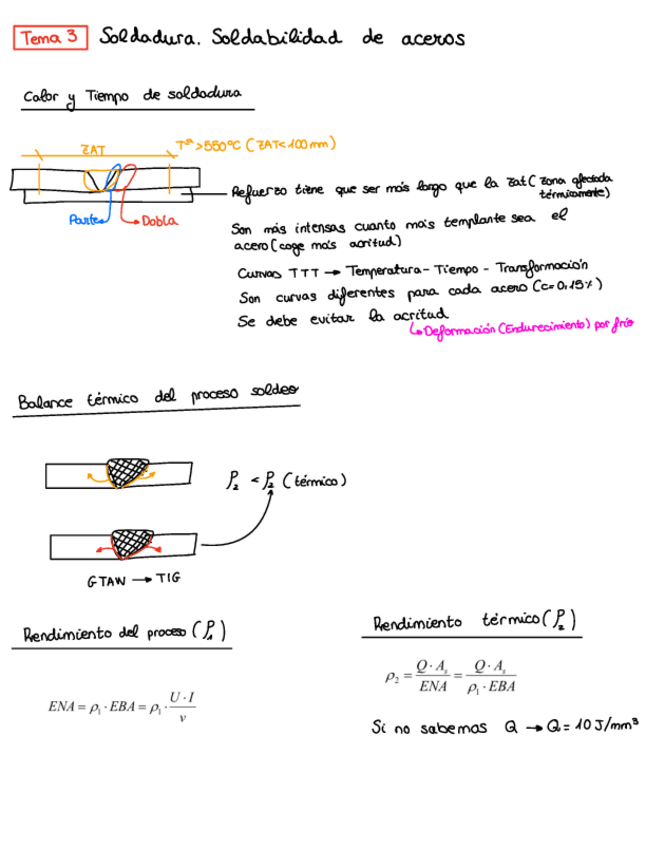 Tema 3 Soldadura. Soldabilidad de aceros
Calor y Tiempo de soldadura
ZAT
Tª > 550ºC (ZAT < 100 mm)
Parte
Dobla
Refuerzo tiene que ser más largo que la zat (zona afectada
térmicamente)
Son más intensas cuanto más templante sea el
acero (coge más acritud)
Curvas TTT → Temperatura - Tiempo - Transformación
Son curvas diferentes para cada acero (c=0,15%)
Se debe evitar la acritud
↳ Deformación (Endurecimiento) por frío
Balance térmico del proceso soldeo
ρ₂ < ρ₂ (térmico)
GTAW → TIG
Rendimiento del proceso (ρ₁)
ENA = ρ₁ · EBA = ρ₁ · U · I / v
Rendimiento térmico (ρ₂)
ρ₂ = Q · Aₛ / ENA = Q · Aₛ / ρ₁ · EBA
Si no sabemos Q → Q = 10 J/mm³